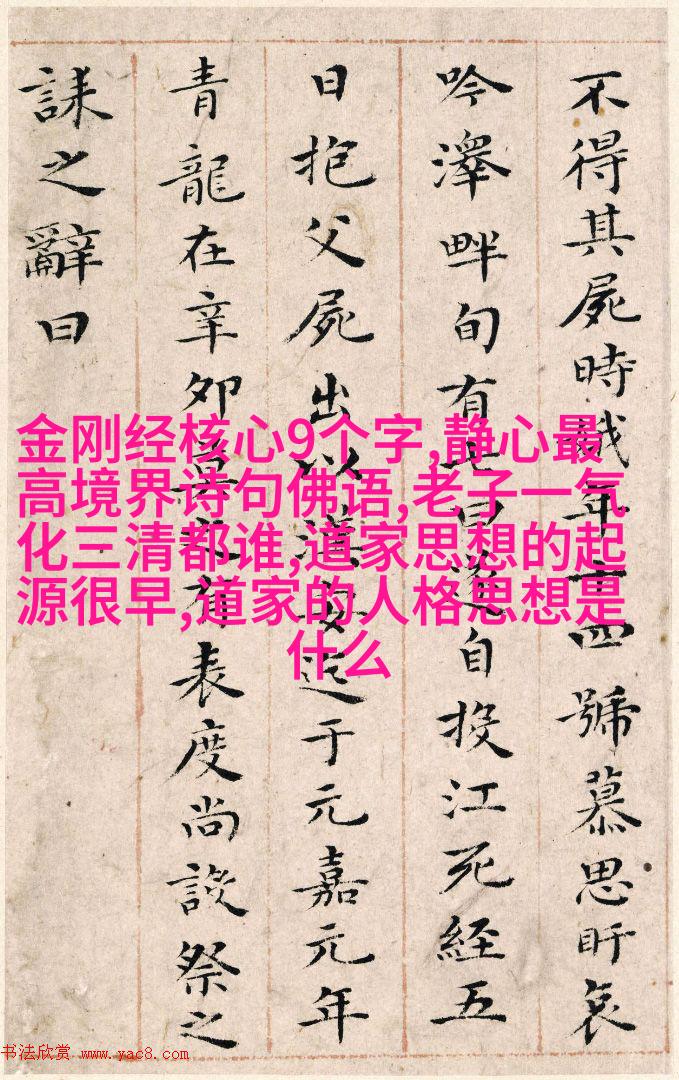 不得其屍時娥年十四號慕思盱哀
吟澤畔旬有七日遂自投江死經五
日抱父屍出以漢安迄于元嘉元年
青龍在辛卯莫之有表度尚設祭之
誄之辭曰
金刚经核心9个字,静心最
高境界诗句佛语,老子一气
化三清都谁,道家思想的起
源很早,道家的人格思想是
什么
书法欣赏 www.yac8.com